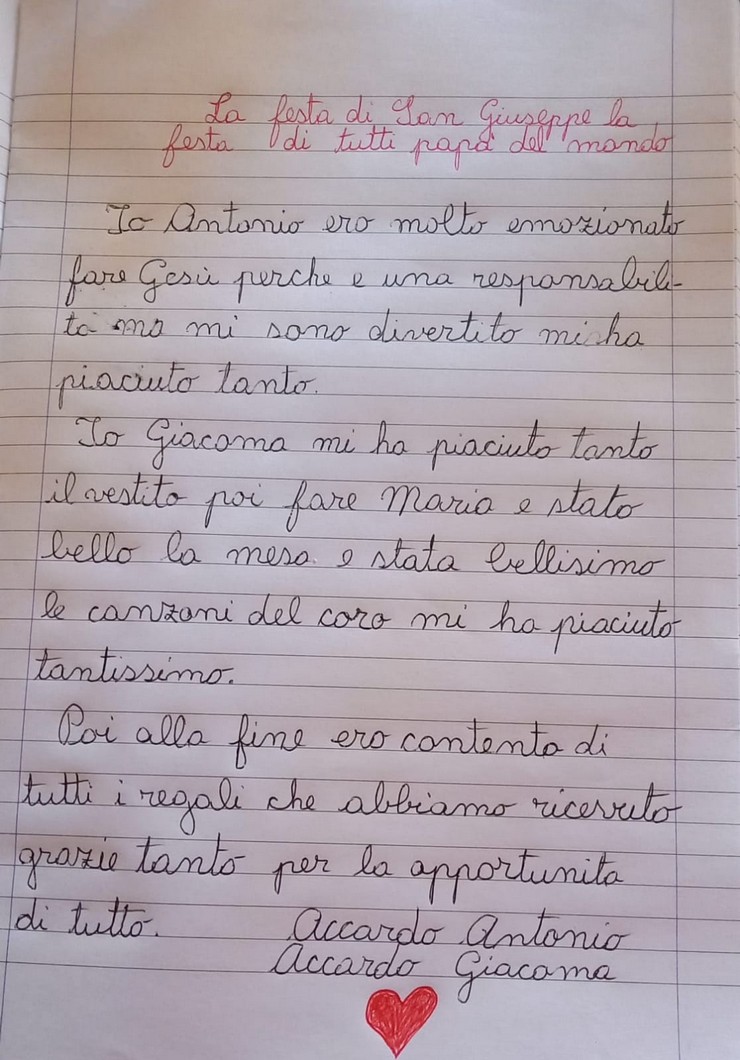 La festa di San Giuseppe la
festa di tutti papà del mondo
Io Antonio ero molto emozionato
fare Gesù perche e una responsabili-
ta ma mi sono divertito mi ha
piaciuto tanto.
Io Giacoma mi ha piaciuto tanto
il vestito poi fare Maria e stato
bello la mesa e stata bellisimo
le canzoni del coro mi ha piaciuto
tantissimo.
Poi alla fine ero contenta di
tutti i regali che abbiamo ricevuto
grazie tanto per la apportunita
di tutto. Accardo Antonio
Accardo Giacoma